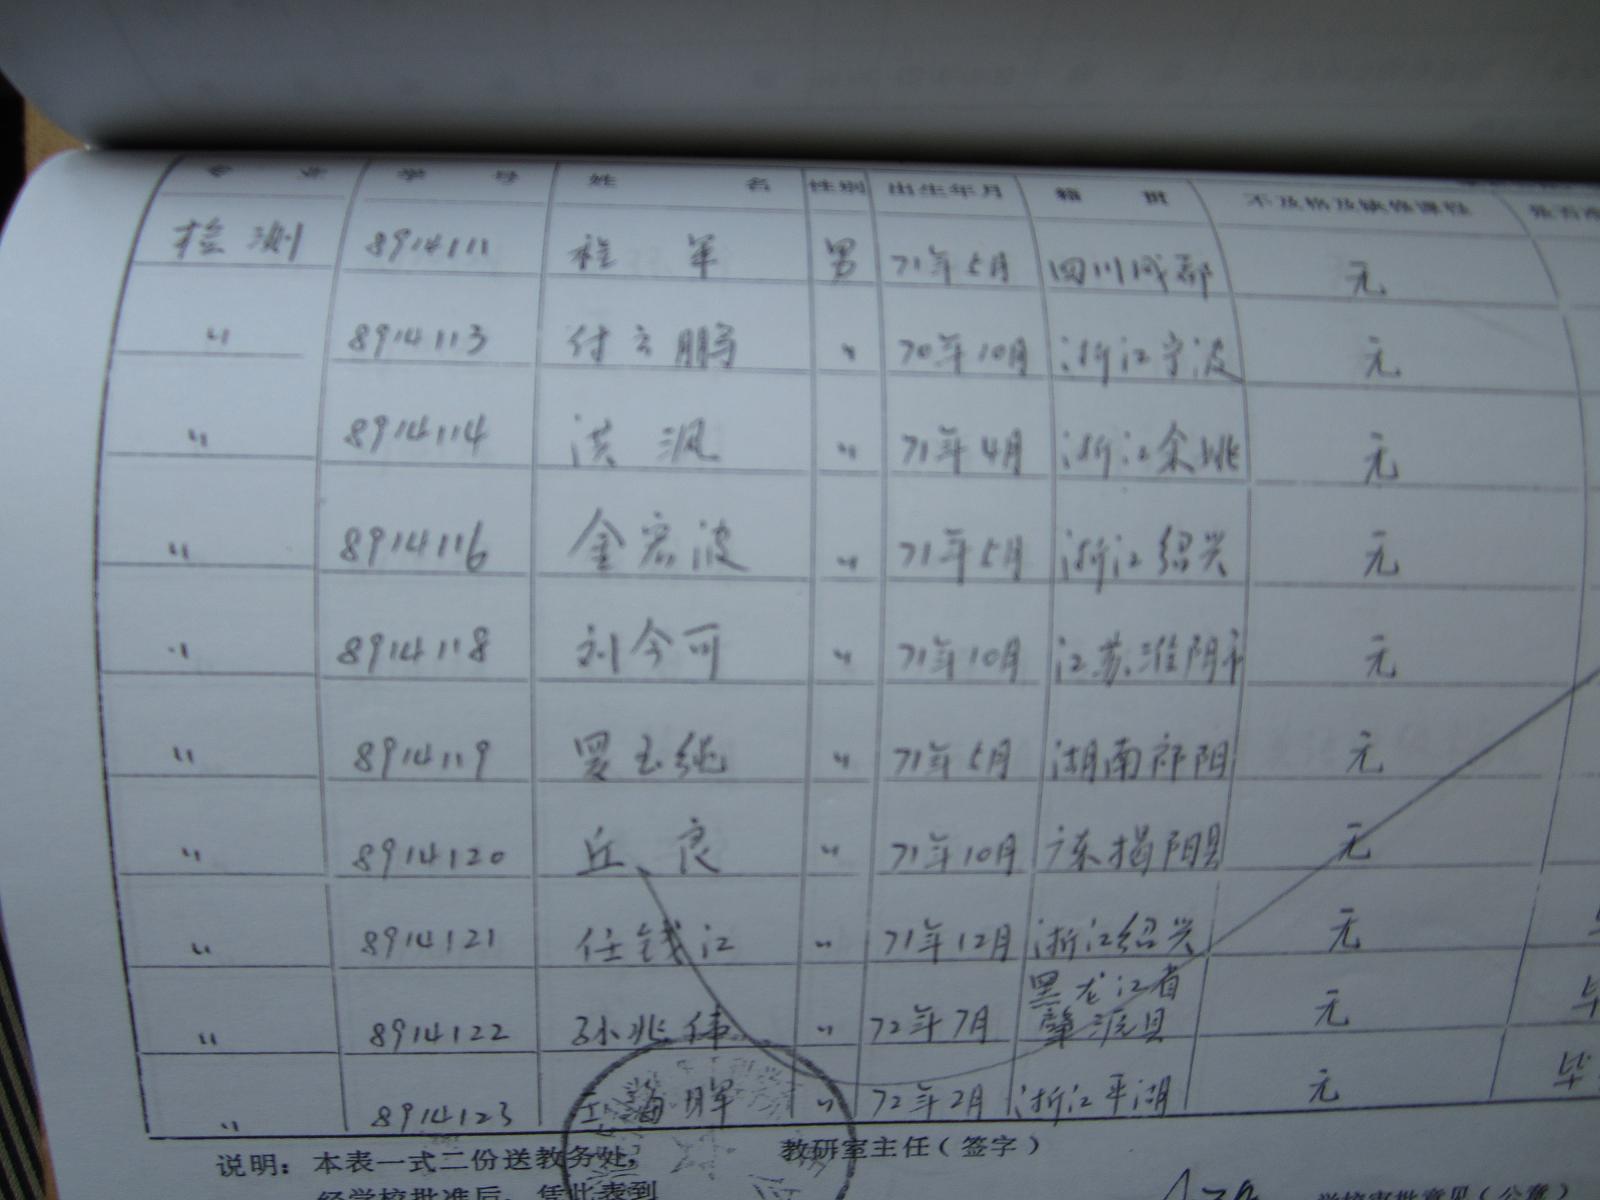 专 业 学 号 姓 名 性别 出生年月 籍 贯 不及格及缺修课程 是否
检测 8914111 程 军 男 71年5月 四川成都 无
〃 8914113 付云鹏 〃 70年10月 浙江宁波 无
〃 8914114 洪 沨 〃 71年4月 浙江余姚 无
〃 8914116 金宏波 〃 71年5月 浙江绍兴 无
〃 8914118 刘今可 〃 71年10月 江苏淮阴市 无
〃 8914119 玉纯 〃 71年5月 湖南祁阳 无
〃 8914120 丘 良 〃 71年10月 广东揭阳县 无
〃 8914121 任钱江 〃 71年12月 浙江绍兴 无
〃 8914122 孙兆伟 〃 72年7月 黑龙江省肇源县 无 毕
〃 8914123 海晖 〃 72年2月 浙江平湖 无 毕
说明：本表一式二份送教务处， 教研室主任（签字）
经学校批准后，凭此表到 学校审批意见（公章）